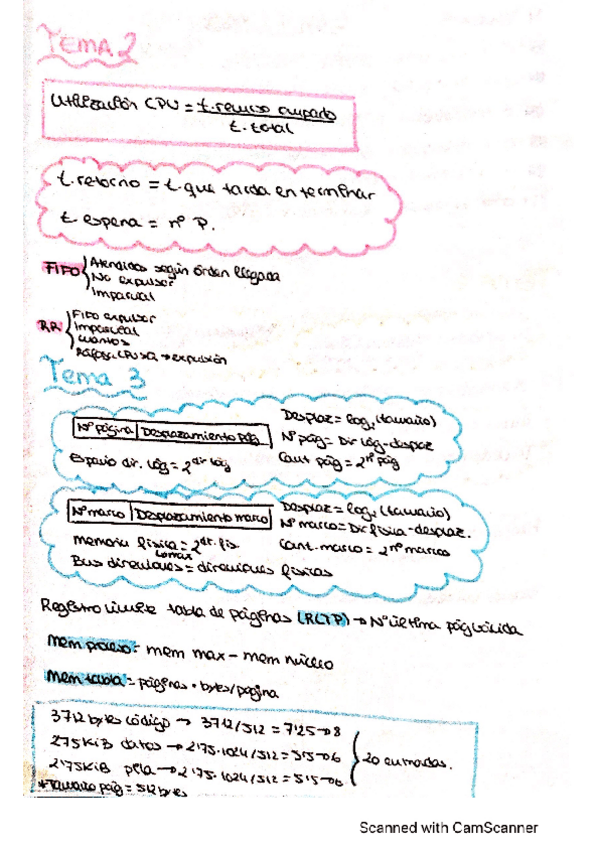 TEMA 2
Utilización CPU = t. remiso ocupado
t. total
t. retorno = t. que tarda en terminar
t espera = nº P.
FIFO
Atendidos según órden llegada
No expulsor
Imparcial
RR
FIFO expulsor
Imparcial
Cuantos
Ráfaga CPU > Q → expulsión
Tema 3
Nº página | Desplazamiento pág
Desplaz = log₂ (tamaño)
Nº pág = Dir lóg - desplaz
Cant pág = 2^nº pág
Espacio dir. lóg = 2^dir lóg
Nº marco | Desplazamiento marco
Desplaz = log₂ (tamaño)
Nº marco = Dir física - desplaz.
Cant. marco = 2^nº marcos
Memoria física = 2^dir. fís
Bus direcciones = direcciones físicas
Registro límite tabla de páginas (RLTP) → Nº última pág válida
Mem proceso = mem max - mem núcleo
Mem tabla = páginas · bytes/página
3712 bytes código → 3712/512 = 7'25 → 8
2'75 KiB datos → 2'75·1024/512 = 5'5 → 6
2'75 KiB pila → 2'75·1024/512 = 5'5 → 6
20 entradas.
*Tamaño pág = 512 bytes
Scanned with CamScanner